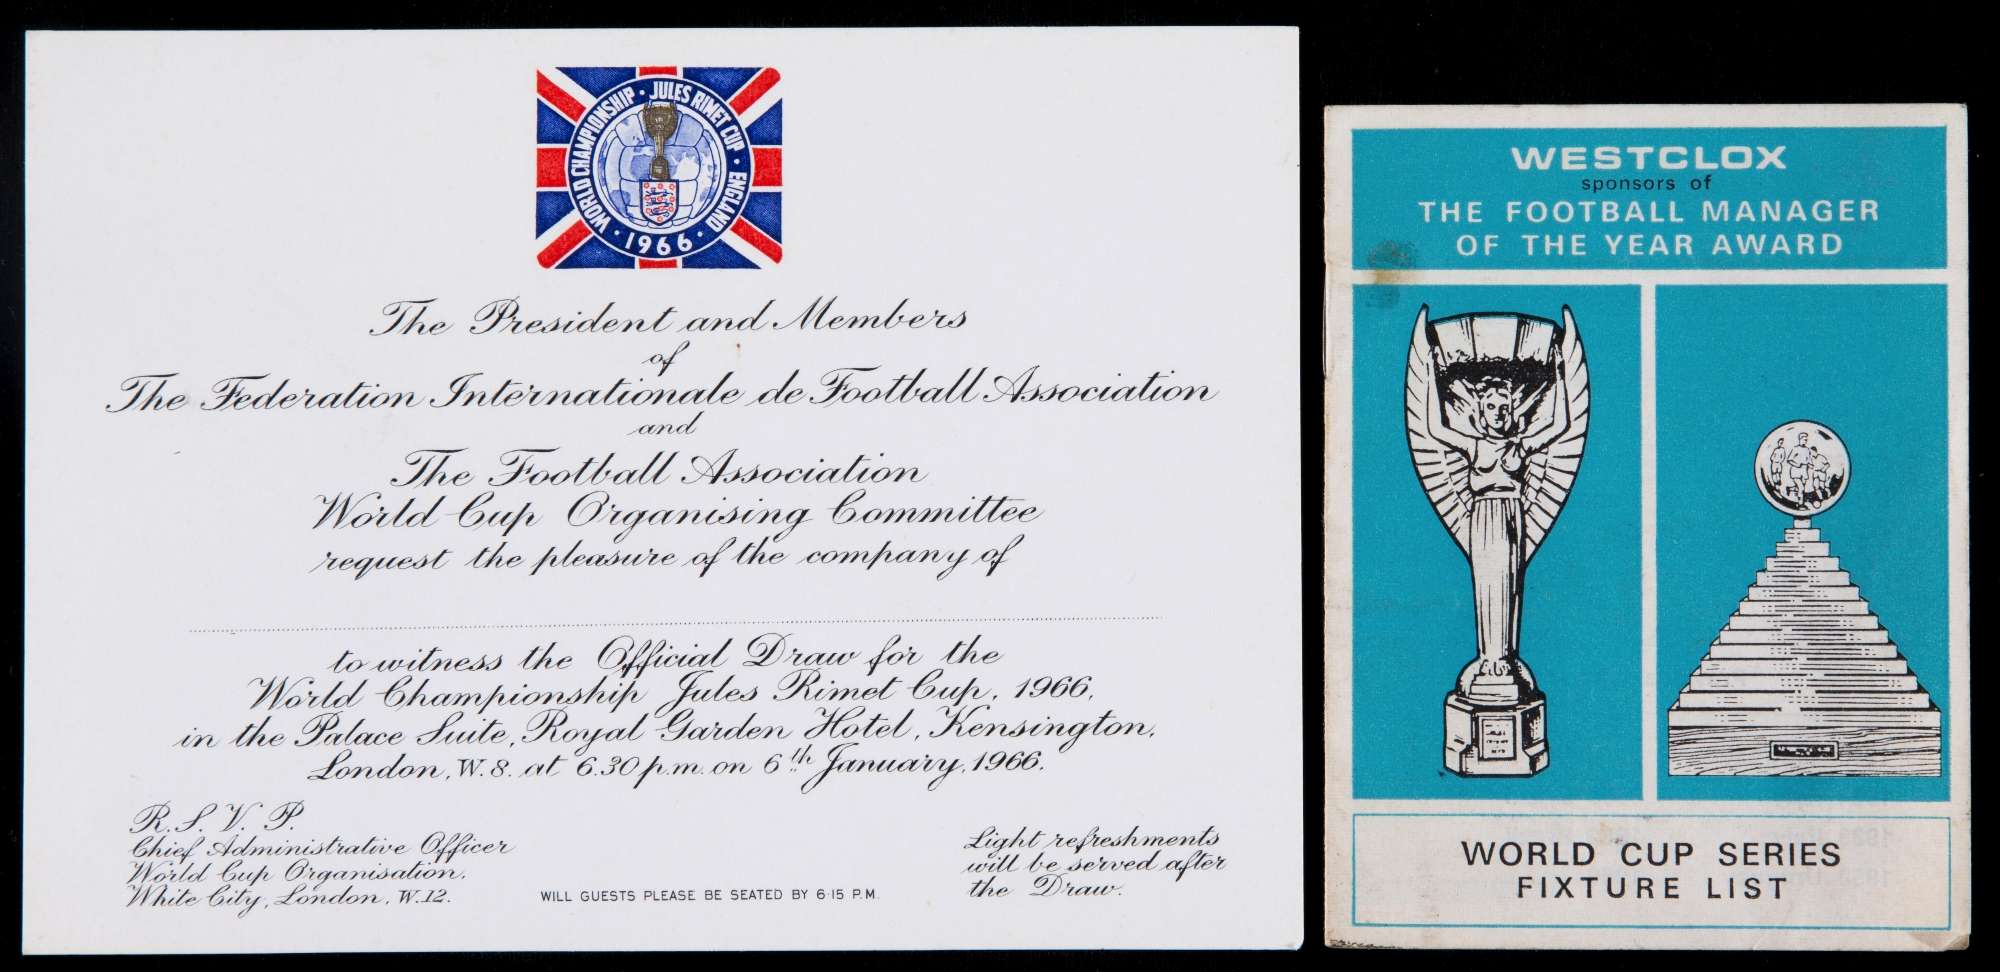 WORLD CHAMPIONSHIP · JULES RIMET CUP · ENGLAND
· 1966 ·
The President and Members
of
The Federation Internationale de Football Association
and
The Football Association
World Cup Organising Committee
request the pleasure of the company of
to witness the Official Draw for the
World Championship Jules Rimet Cup, 1966,
in the Palace Suite, Royal Garden Hotel, Kensington,
London, W.8. at 6.30 p.m. on 6th January, 1966.
R.S.V.P.
Chief Administrative Officer
World Cup Organisation,
White City, London, W.12.
WILL GUESTS PLEASE BE SEATED BY 6·15 P.M.
Light refreshments
will be served after
the Draw.
WESTCLOX
sponsors of
THE FOOTBALL MANAGER
OF THE YEAR AWARD
WORLD CUP SERIES
FIXTURE LIST